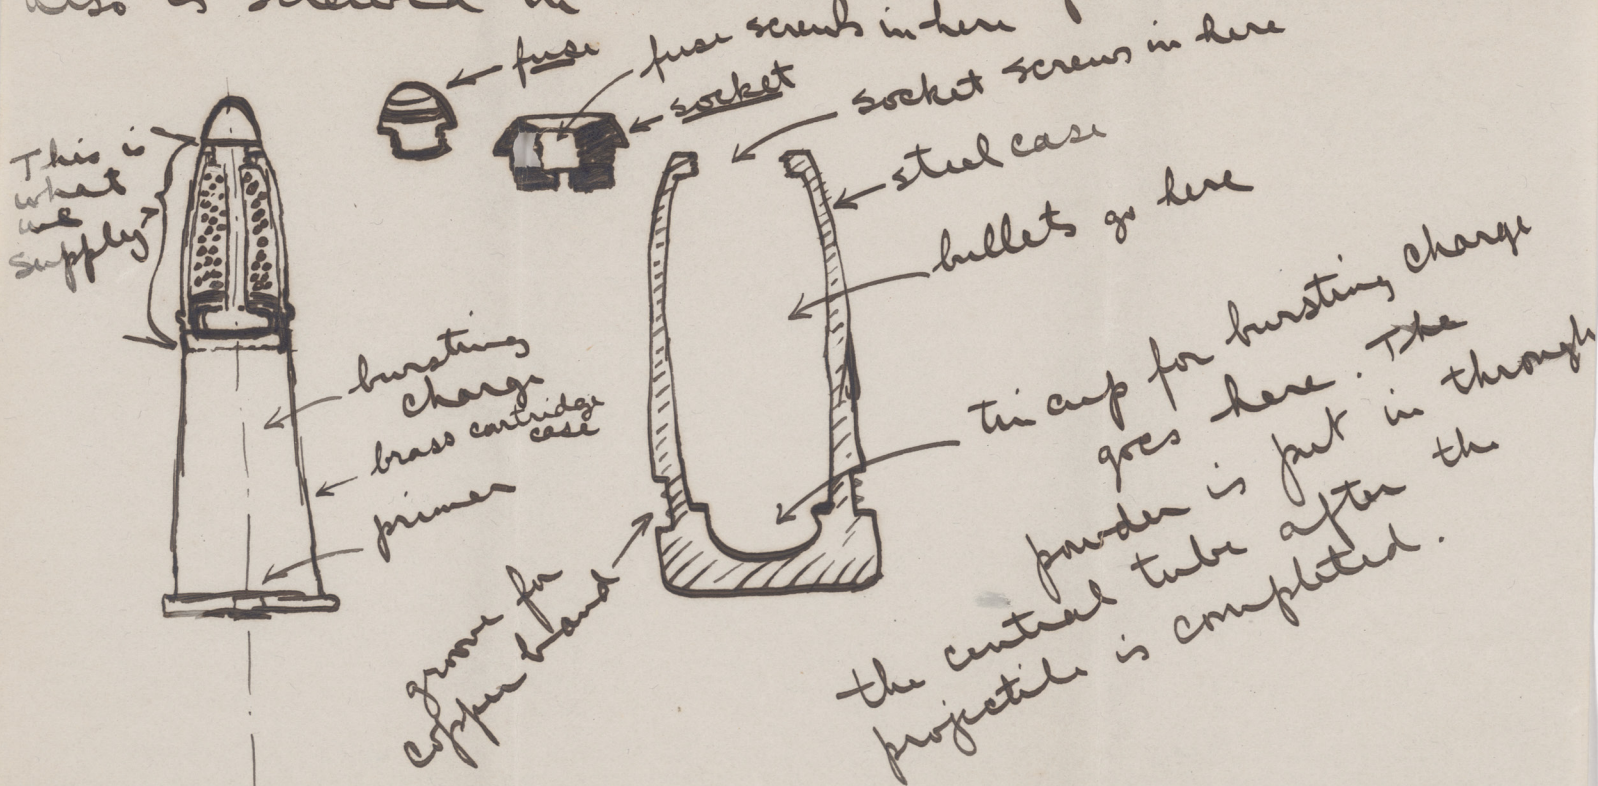 also is screwed in
fuse
fuse screws in here
socket
socket screws in here
steel case
bullets go here
This is
what
we
supply
bursting
charge
brass cartridge
case
primer
groove for
copper band
tin cup for bursting charge
goes here. The
powder is put in through
the central tube after the
projectile is completed.